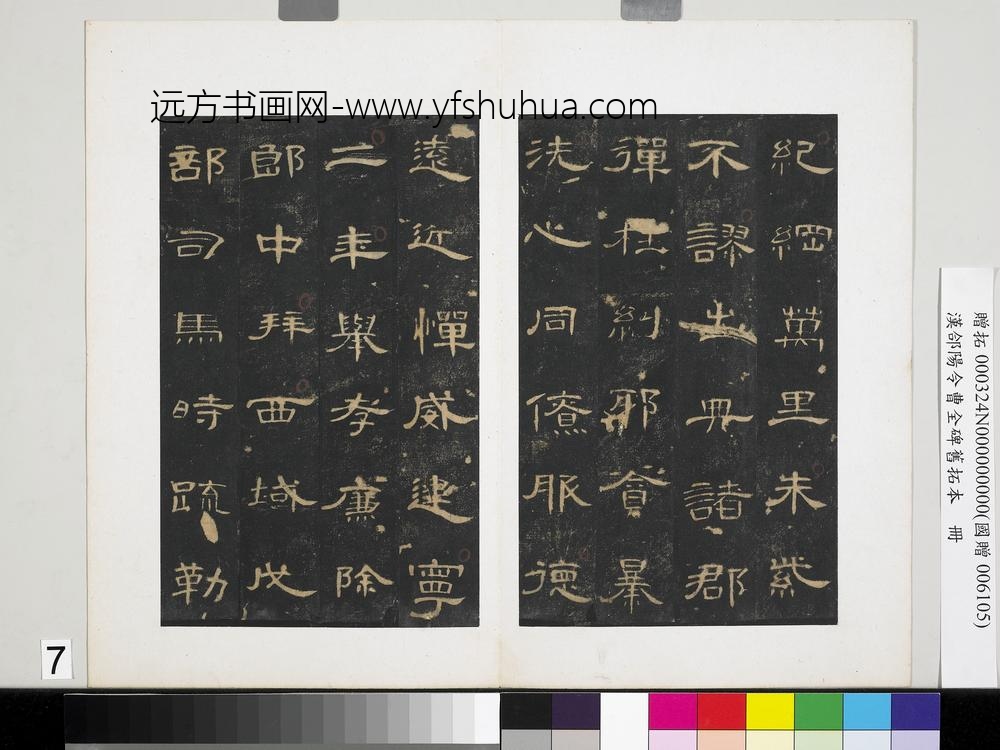 远方书画网-www.yfshuhua.com
紀綱萬里朱紫
不謬出典諸郡
彈枉糾邪貪暴
洗心同僚服德
遠近憚威建寧
二年舉孝廉除
郎中拜西域戊
部司馬時疏勒
贈拓 000324N000000000(國贈 006105)
漢郃陽令曹全碑舊拓本 冊
7